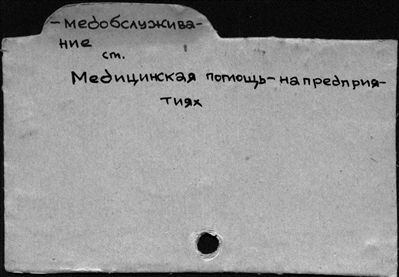 -медобслужива-
ние
ст.
Медицинская помощь-на предприя-
тиях